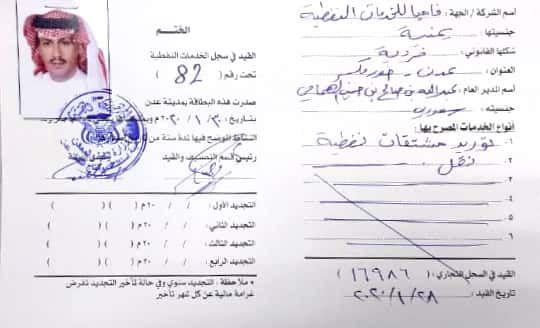 اسم الشركة / الجهة : فاحيا للخدمات النفطية
جنسيتها : يمنية
شكلها القانوني : فردية
العنوان : عدن - خورمكسر
اسم المدير العام : عبدالله بن صالح بن حسين
جنسيته : سعودي
أنواع الخدمات المصرح بها :
١ - توريد مشتقات نفطية
٢ - نقل
٣ -
٤ -
٥ -
٦ -
القيد في السجل التجاري : ( ١٦٩٨٦ )
تاريخ القيد : ٢٠٢٠/١/٢٨ م
الختم
القيد في سجل الخدمات النفطية
تحت رقم ( 82 )
صدرت هذه البطاقة بمدينة عدن
بتاريخ : ٣٠ / ١ / ٢٠٢٠م
النشاط الموضح فيها لمدة سنة من
رئيس قسم التصنيف والقيد
التجديد الأول : / / ٢٠م ( ) ( )
التجديد الثاني : / / ٢٠م ( ) ( )
التجديد الثالث : / / ٢٠م ( ) ( )
التجديد الرابع : / / ٢٠م ( ) ( )
• ملاحظة : التجديد سنوي وفي حالة تأخير التجديد تفرض
غرامة مالية عن كل شهر تأخير